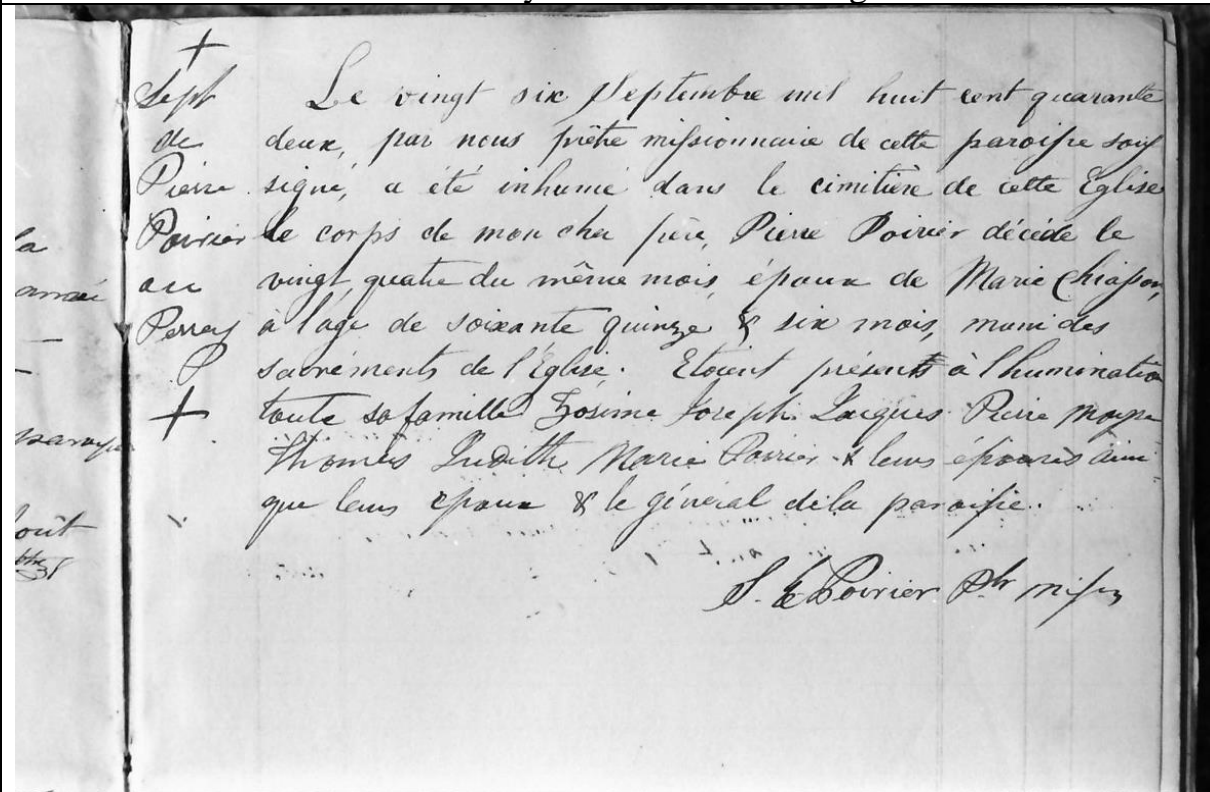 +
Sept
de
Pierre
Poirier
ou
Perrey
P
+
Le vingt six Septembre mil huit cent quarante
deux, par nous prêtre missionnaire de cette paroisse sous
signé, a été inhumé dans le cimitière de cette Eglise
le corps de mon cher père, Pierre Poirier décéde le
vingt quatre du même mois, époux de Marie Chiasson,
à l'age de soixante quinze & six mois, muni des
sacréments de l'Eglise. Etoient présents à l'humination
toute sa famille Zosime Joseph Jacques Pierre
Thomas Judith Marie Poirier & leurs épouses ainsi
que leurs epoux & le général de la paroisse.
S. E Poirier Ptr miss
la
oût